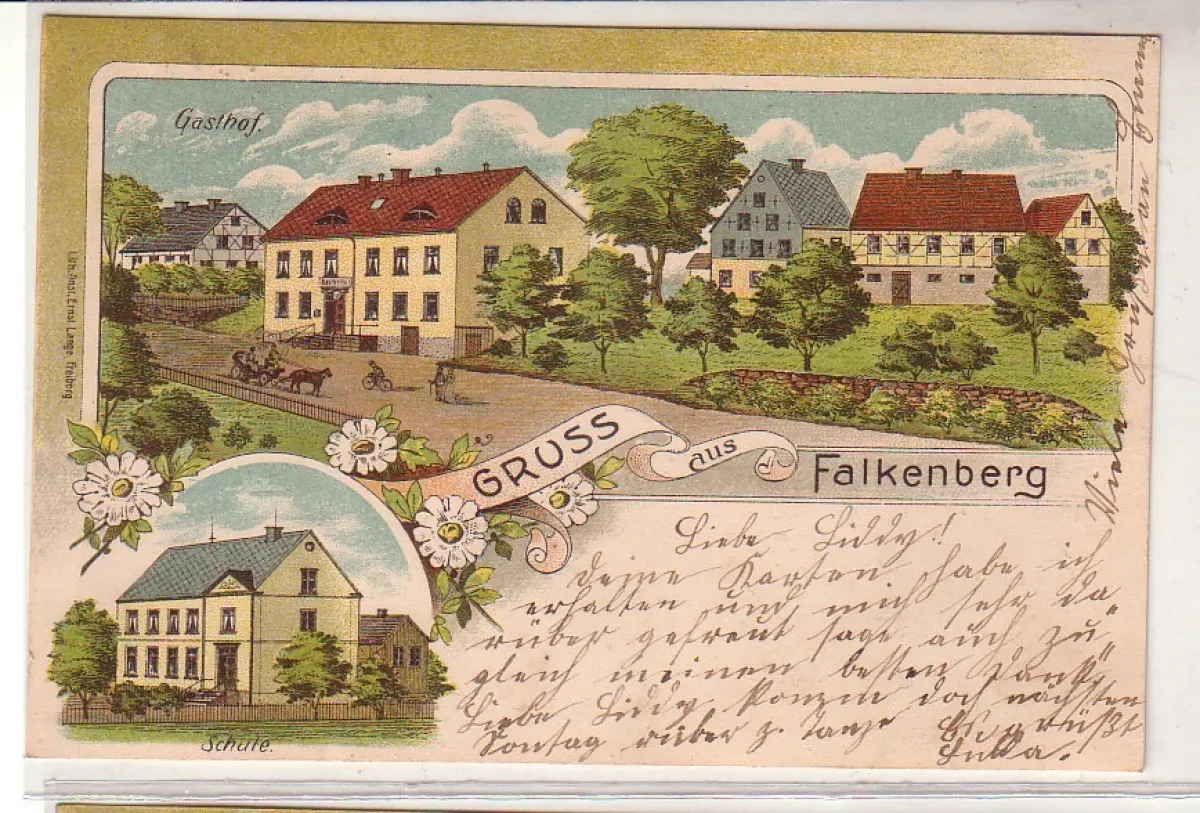 Gasthof.
Lith. Anst. Ernst Lange Freiberg
GRUSS
aus
Falkenberg
Schule.
Liebe Liddy!
deine Karten habe ich
erhalten und mich sehr da„
rüber gefreut sage auch zu„
gleich meinen besten Dank,
Liebe Liddy, doch nächsten
Sontag rüber z. Tanze Es grüßt